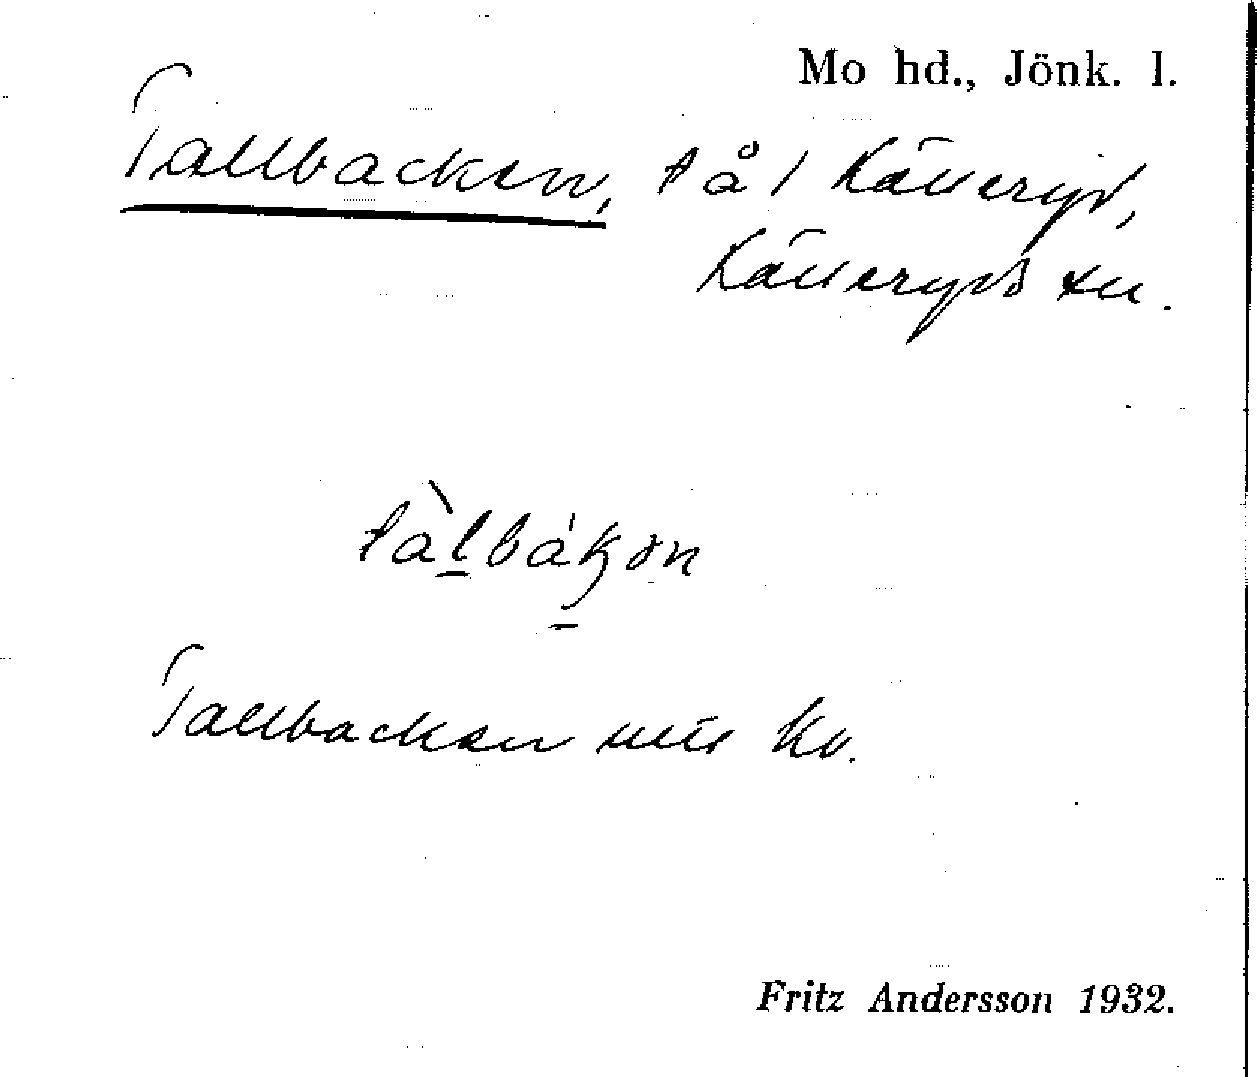 Mo hd., Jönk. l.
Tallbacken, t å l Källeryd,
Källeryds sn.
tàlbákən
Tallbacken
Fritz Andersson 1932.